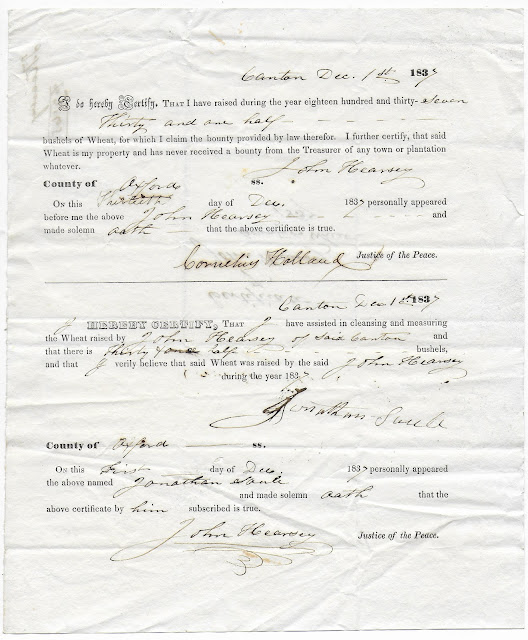 Canton Dec. 1st 1837
I do hereby Certify, THAT I have raised during the year eighteen hundred and thirty-seven
Thirty and one half
bushels of Wheat, for which I claim the bounty provided by law therefor. I further certify, that said
Wheat is my property and has never received a bounty from the Treasurer of any town or plantation
whatever. John Hearsey
County of Oxford ss.
ON this Thirtieth day of Dec. 1837 personally appeared
before me the above John Hearsey and
made solemn oath that the above certificate is true.
Cornelius Holland Justice of the Peace.
Canton Dec 1st 1837
I HEREBY CERTIFY, THAT I have assisted in cleansing and measuring
the Wheat raised by John Hearsey of said Canton and
that there is thirty & one half bushels,
and that I verily believe that said Wheat was raised by the said John Hearsey
during the year 1837
Jonathan Soule
County of Oxford ss.
ON this First day of Dec. 1837 personally appeared
the above named Jonathan Soule
and made solemn oath that the
above certificate by him subscribed is true.
John Hearsey Justice of the Peace.